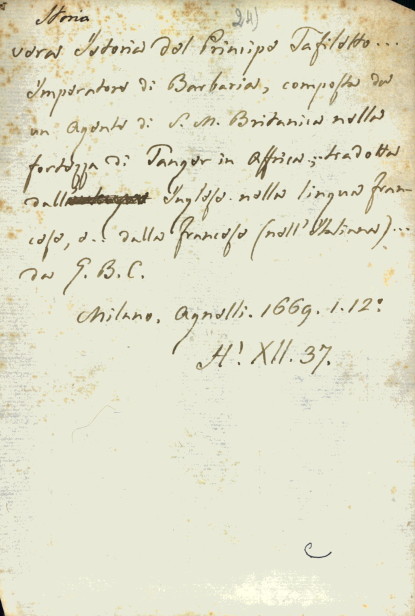 Storia
24)
vera Istoria del Principe Tafiletto...
Imperatore di Barbaria, composta da
un Agente di S. M. Britanica nella
fortezza di Tanger in Affrica, tradotta
dall Inglese nella lingua fran-
cese, e.. dalla francese (nell'Italiana)...
da G. B. C.
Milano. Agnelli. 1669. 1. 12º
H! XII. 37.